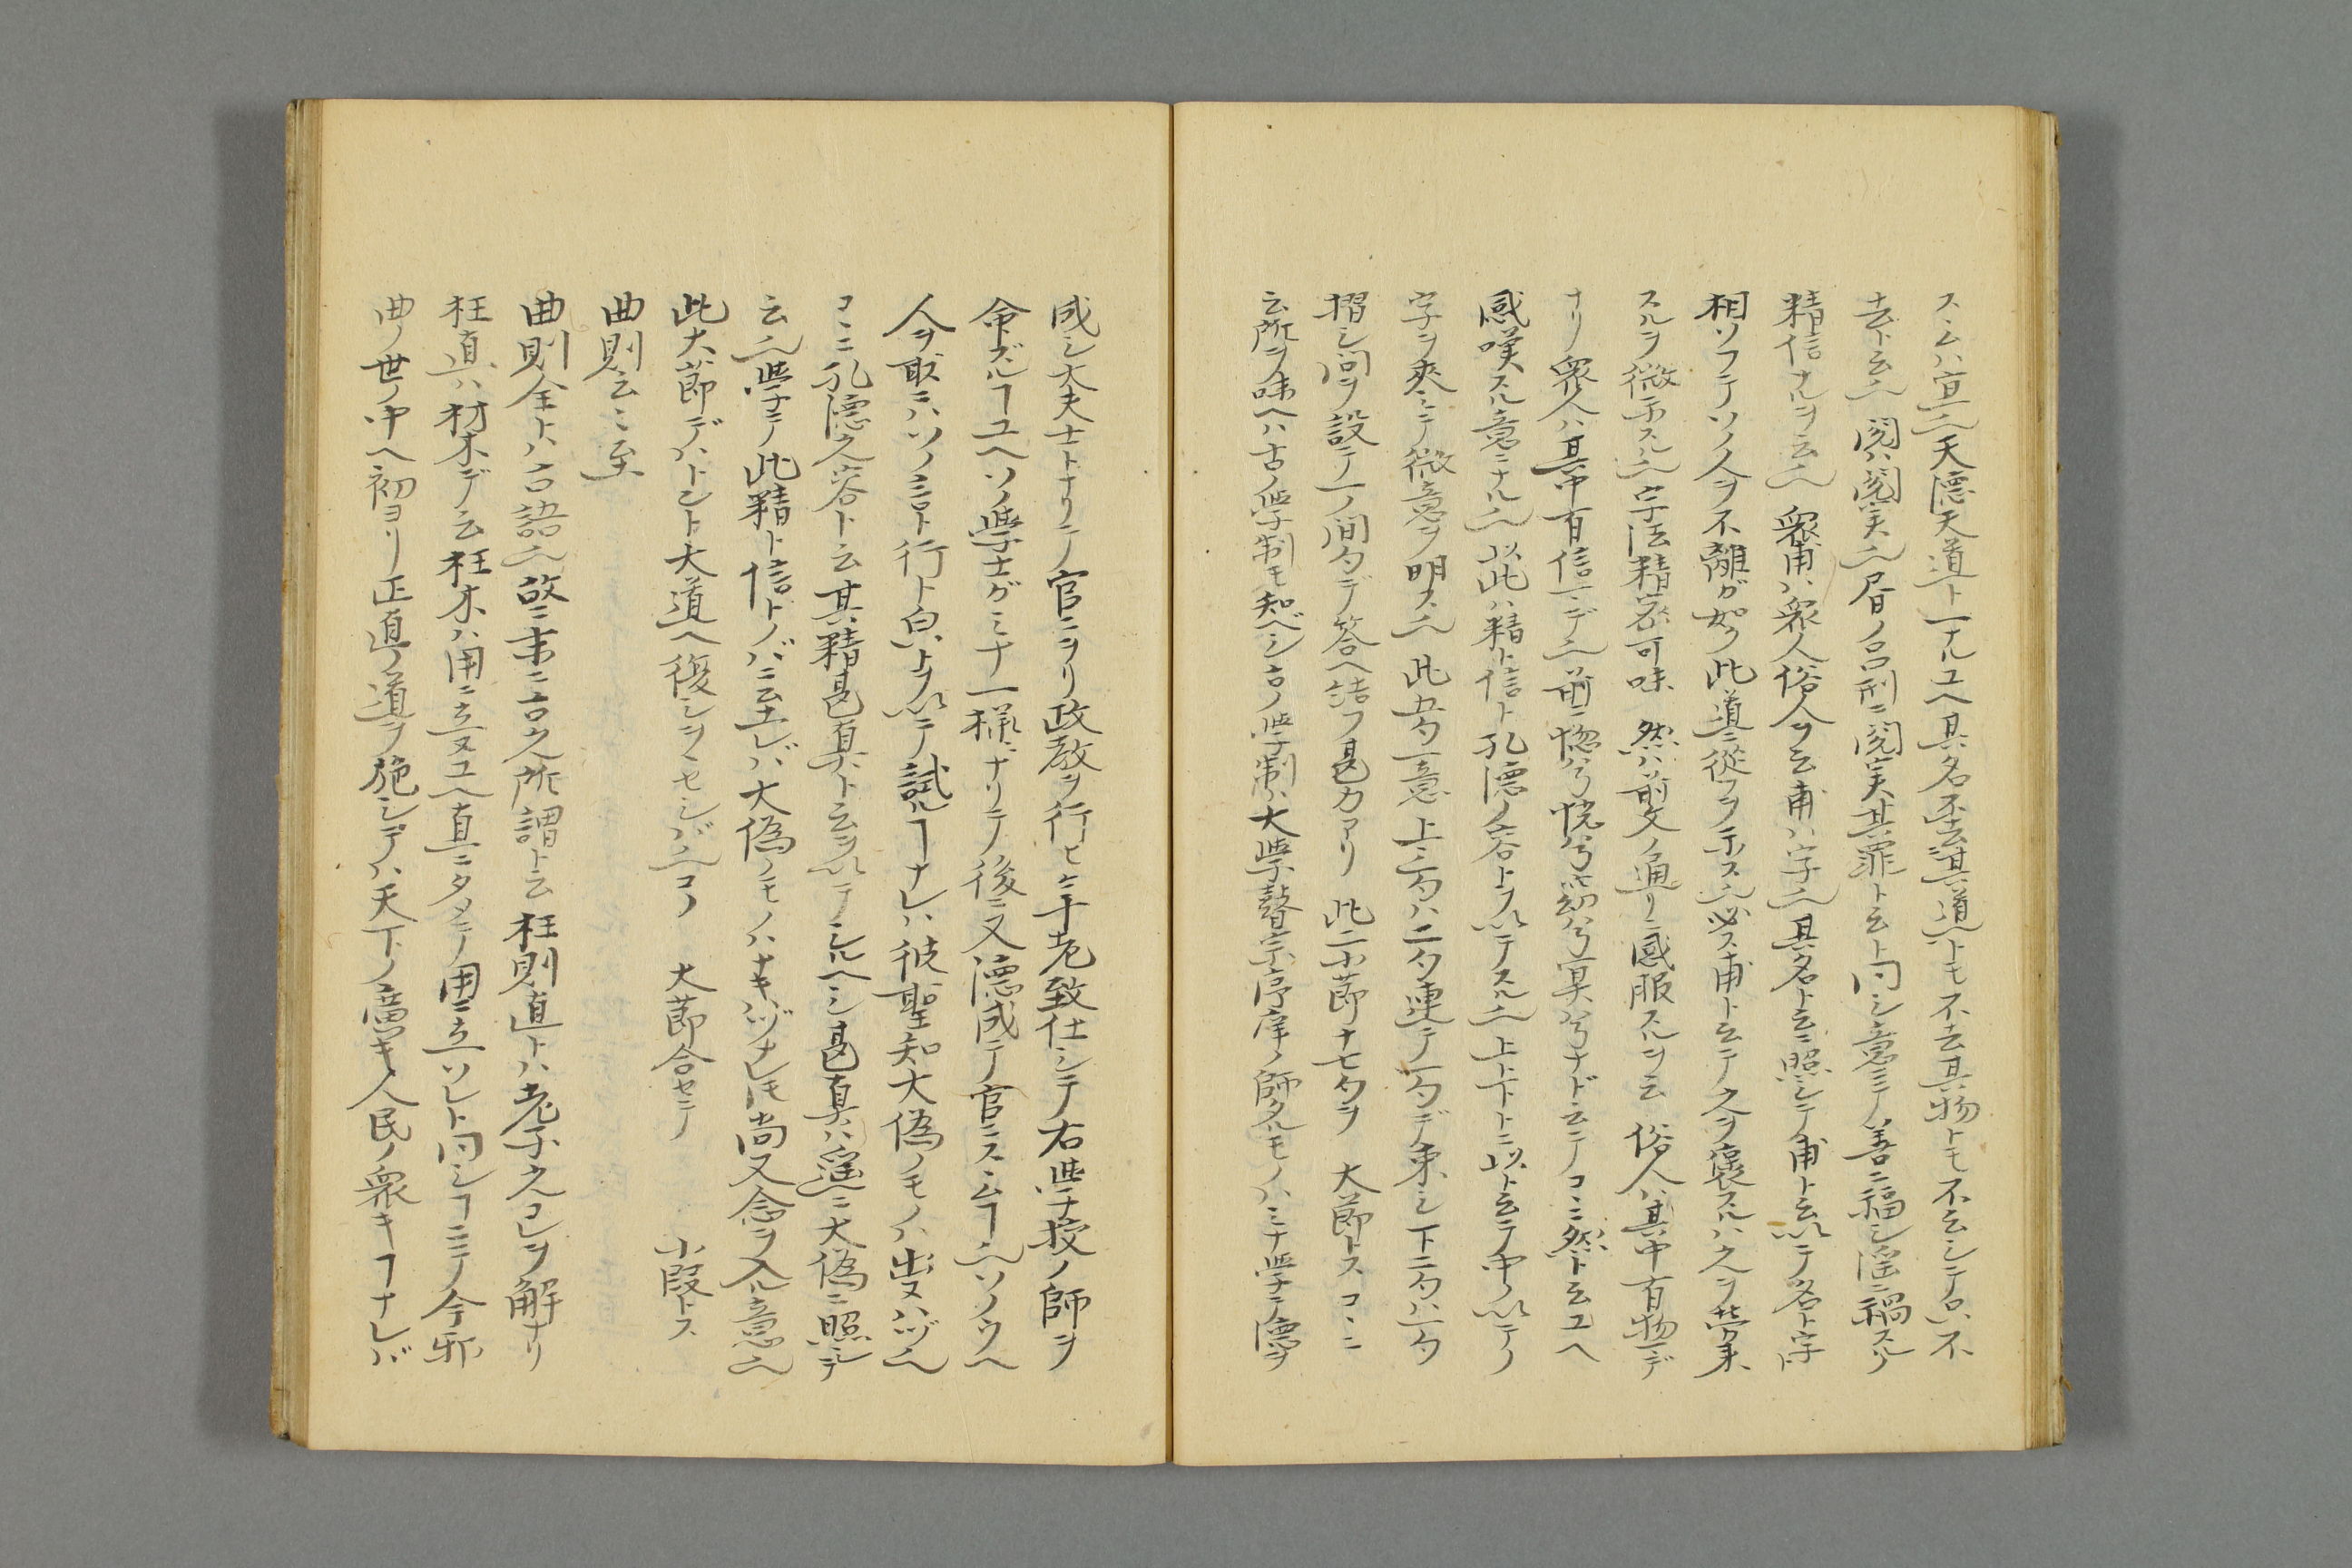 スヽムハ宜也天德天道ト一ナルユヘ其名不去其道トモ不去其物トモ不云シテ只不
去ト云也閲ハ閲実也眉ノ呂刑ニ閲実其罪ト云ト同シ意ニテ善ニ福シ淫ニ禍スルノ
精信ナルヲ云也衆甫ハ衆人俗人ヲ云甫ハ字也其名ト云ニ照シテ甫ト云以テ名ト字
相ソフテソノ人ヲ不離ガ如ク此道ニ從フヲ示ス也必ス甫ト云テ之ヲ褒スルハ之ヲ
スルヲ微示スル也字法精密可味然ハ前文ノ通リニ感服スルヲ云俗人ハ其中有物デ
ナリ衆人ハ其中有信ニデ也前ニ惚兮怳兮窈兮冥兮ナド云テコヽニ然ト云ユヘ
感嘆スル意ニナル也以此ハ精ト信ト孔德ノ容トヲ以テスル也上上下トニ以ト云テ中ノ以テノ
字ヲ夾ミテ微意ヲ明ス也此五句一意上三句ハ二句連テ一句デ束シ下二句ハ一句
摺シ問ヲ設テ一ノ間句デ答ヘ結フ甚力アリ此二小節十七句ヲ大節トスコヽニ
云所ヲ味ヘハ古ノ学制モ知ベシ古ノ学制ハ大学瞽宗序庠ノ師タルモノハミナ学テ德ヲ
成シ大夫士トナリテ官ニヲリ政教ヲ行ヒケ年老致仕シテ右学校ノ師ヲ
命ズルコユヘソノ学士ガミナ一様ニナリテ後ニ又德成テ官ニスヽムコ也ソノウヘ
人ヲ取ニハソノ言ト行ト白トヲ以テ試ルコナレハ彼聖知大偽ノモノハ出ヌハヅ也
コヽニ孔德之容ト云其精甚真ト云ヲ以テシルヘシ甚真ハ遥ニ大偽ニ照シテ
云也学テ此精ト信トノバニ至レバ大偽ノモノハナキハヅナレモ尚又念ヲ入ル意也
此大節デハトント大道ヘ復シヲヽセシバ也コノ 大節合セテ 小段トス
曲則云々至
曲則全トハ古語也故ニ末ニ古之所謂ト云枉則直トハ老子之コレヲ解ナリ
枉直ハ材木デ云枉木ハ用ニ立ヌユヘ直ニタメテ用ニ立ソレト同シコニテ今邪
曲ノ世ノ中ヘ初ヨリ正直ノ道ヲ施シテハ天下ノ悪キ人民ノ衆キコナレバ